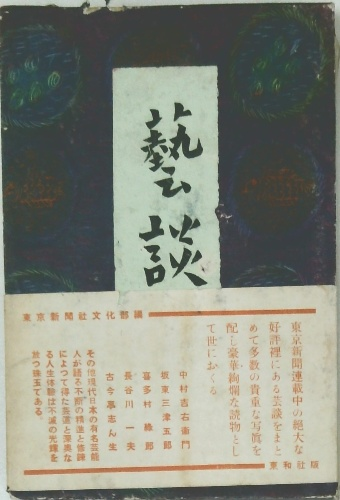 藝談
東京新聞社文化部編
東京新聞連載中の絶大な
好評裡にある芸談をまと
めて多数の貴重な写真を
配し豪華絢爛な読物とし
て世におくる
中村吉右衛門
坂東三津五郎
喜多村緑郎
長谷川一夫
古今亭志ん生
その他現代日本の有名芸能
人が語る不断の精進と修練
によつて得た芸道と深奥な
る人生体験は不滅の光輝を
放つ珠玉である。
東和社版